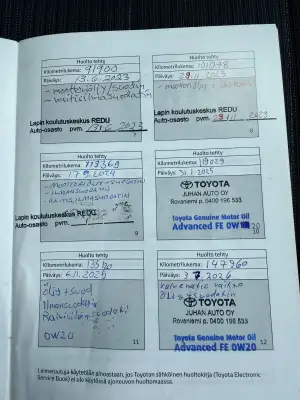 Huolto tehty
Kilometrilukema: 91900
Päiväys: 13.6.2023
- moottoriöljy/suodin
- raitisilmasuodatin
Lapin koulutuskeskus REDU
Auto-osasto pvm. 13.6.2023
Huolto tehty
Kilometrilukema: 101048
Päiväys: 29.11.2023
- moottoriöljy
Lapin koulutuskeskus REDU
Auto-osasto pvm. 29.11.2023
8
Huolto tehty
Kilometrilukema: 113369
Päiväys: 17.9.2024
- MOOTTORIÖLJY+SUODATIN
- ILMANSUODATIN
- RAITISILMASUODATIN
Lapin koulutuskeskus REDU
Auto-osasto pvm.
9
Huolto tehty
Kilometrilukema: 119029
Päiväys: 31.1.2025
TOYOTA
JUHAN AUTO OY
Rovaniemi p. 0400 196 533
Toyota Genuine Motor Oil
Advanced FE 0W20
10
Huolto tehty
Kilometrilukema:
Päiväys: 6.11.2025
öljt+suod
Ilmansuodatin
Raitisilmasuodatin
0W20
11
Huolto tehty
Kilometrilukema: 147960
Päiväys: 3.7.2026
TOYOTA
JUHAN AUTO OY
Rovaniemi p. 0400 196 533
Toyota Genuine Motor Oil
Advanced FE 0W20
12
Leimaruutuja käytetään ainoastaan, jos Toyotan sähköinen huoltokirja (Toyota Electronic
Service Book) ei ole käytössä ajoneuvon huoltomaassa.